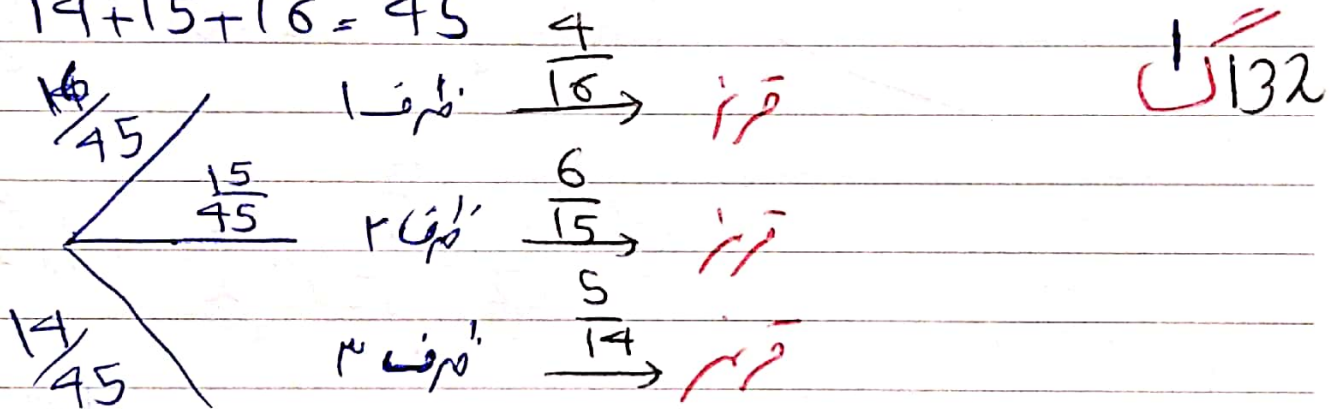 14+15+16=45
132
16/45 ظرف ۱ 4/16 → قرمز
15/45 ظرف ۲ 6/15 → قرمز
14/45 ظرف ۳ 5/14 → قرمز